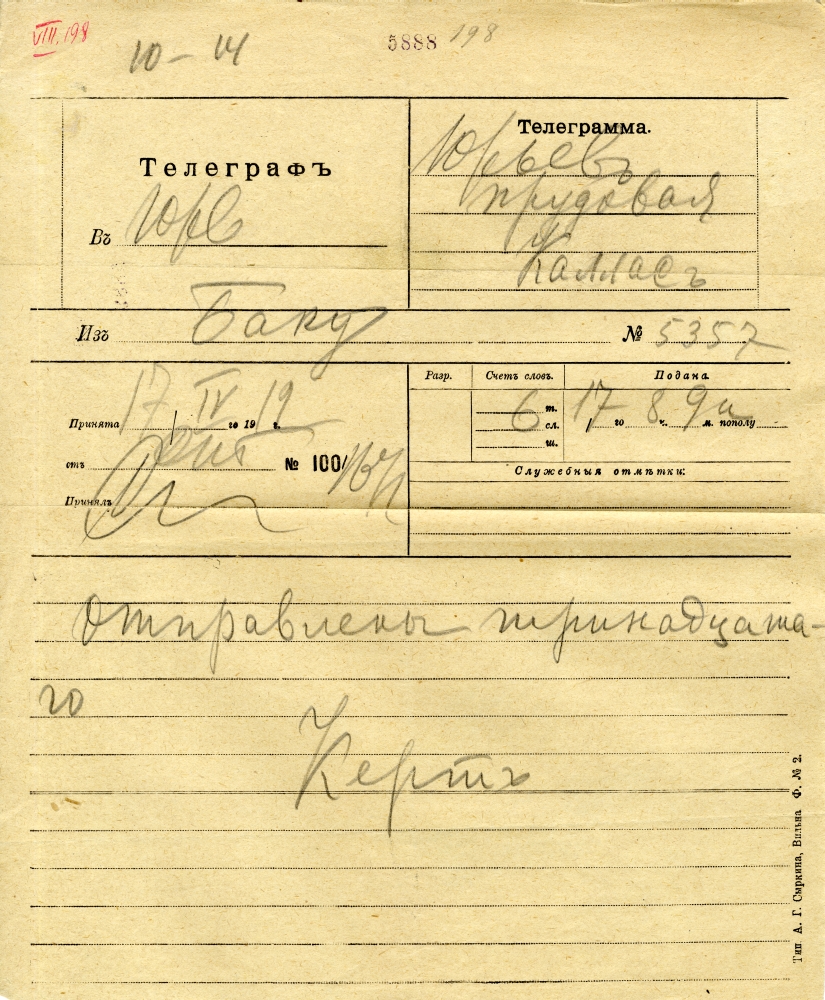 VIII, 198
10 – 14
5888 198
Телеграфъ
Въ Юрв
Телеграмма.
Юрьевъ
прудовая
Калласъ
Изъ Баку
№ 5357
Принята 17/IV го 1912 г.
отъ
№ 100/
Принялъ
Разр. Счетъ словъ. Подана
6 т.
сл.
ш.
17 го 8 ч. 9 м. пополу
Служебныя отмѣтки:
Отправлены тринадцата-
го
Кертъ
Тип. А. Г. Сыркина, Вильна Ф. № 2.